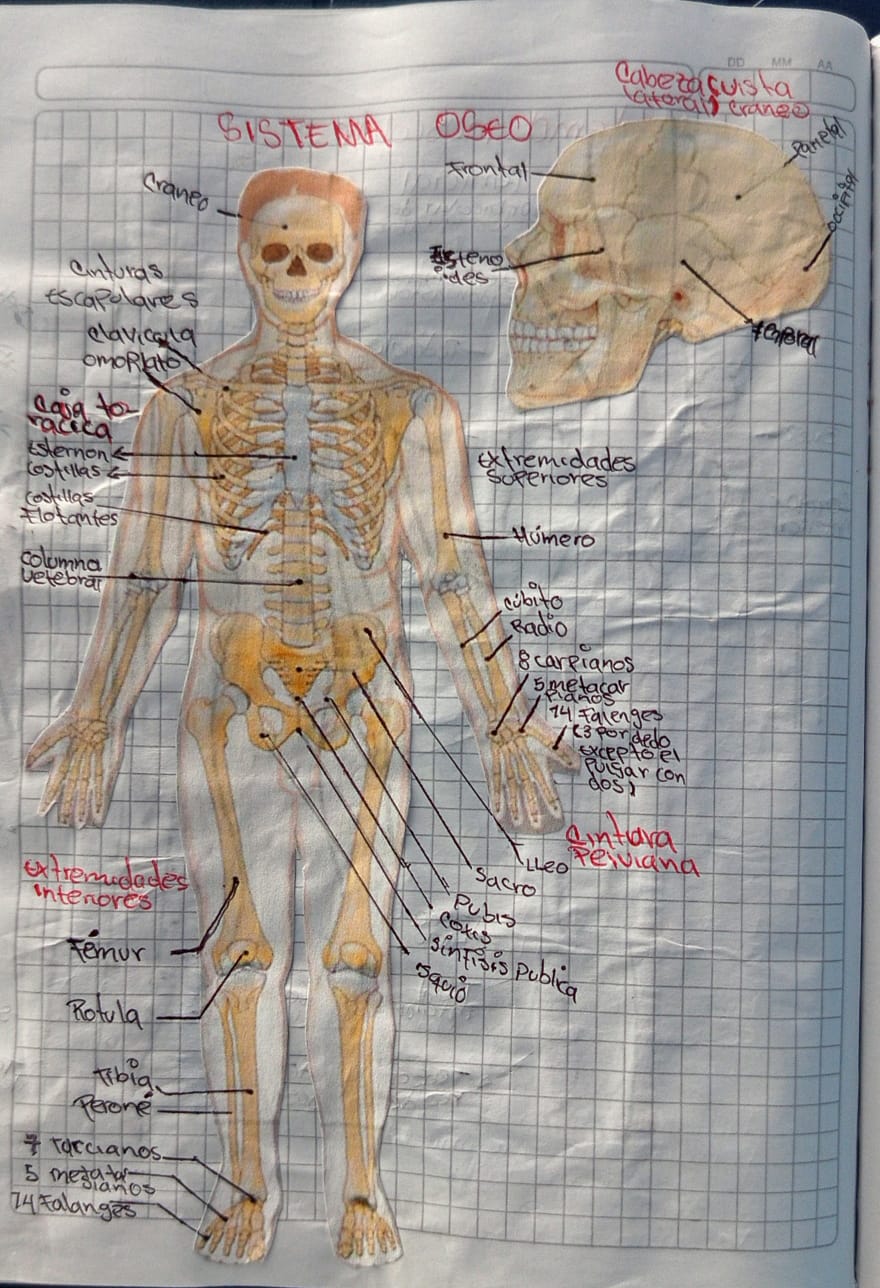 DD MM AA
Cabeza (vista
lateral) craneo
SISTEMA OSEO
Frontal
Parietal
occipital
Esteno
ides
Temporal
Craneo
Cinturas
Escapolares
clavicula
omoplato
Caja to
racica
Esternon
costillas
costillas
Flotantes
columna
vetebral
Extremidades
Superiores
Húmero
Cúbito
Radio
8 carpianos
5 metacar
pianos
14 Falenges
(3 por dedo
excepto el
pulgar con
dos)
Cintura
Pelviana
ILeo
Sacro
Pubis
Coxis
Sinfisis Publica
Isquio
Extremidades
interiores
Fémur
Rotula
Tibia
Peroné
7 Tarcianos
5 metatar
sianos
14 Falanges